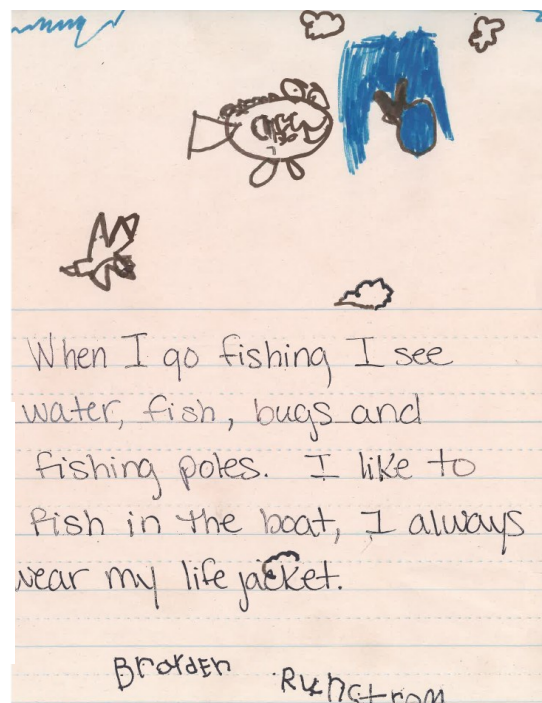 When I go fishing I see
water, fish, bugs and
fishing poles. I like to
fish in the boat, I always
wear my life jacket.
Brayden Rungstrom